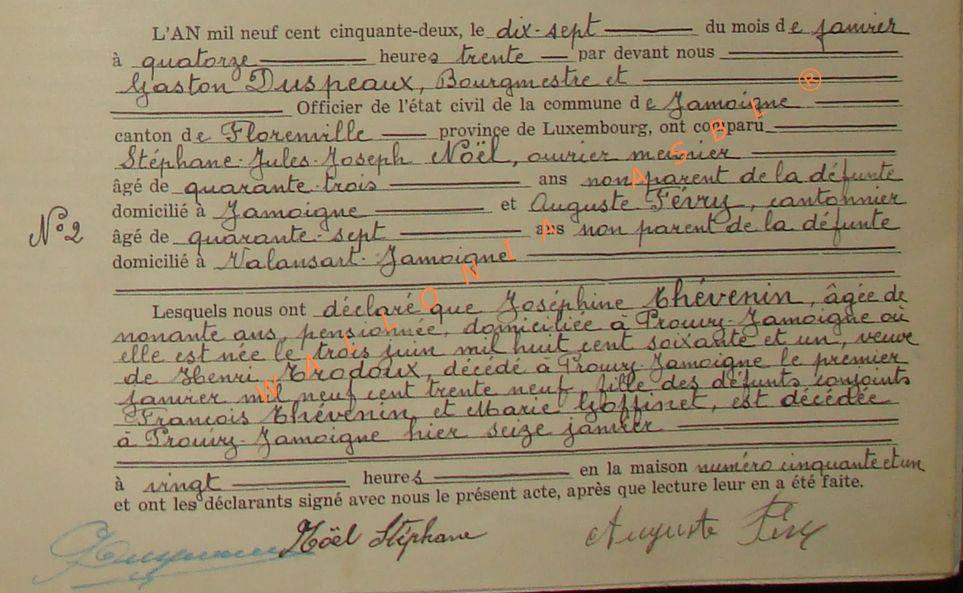 L'AN mil neuf cent cinquante-deux, le dix-sept du mois de janvier
à quatorze heures trente par devant nous
Gaston Duspeaux, Bourgmestre et
Officier de l'état civil de la commune de Jamoigne
canton de Florenville province de Luxembourg, ont comparu
Stéphane-Jules-Joseph Noël, ouvrier meunier
âgé de quarante-trois ans non parent de la défunte
domicilié à Jamoigne et Auguste Févry, cantonnier
N° 2
âgé de quarante-sept ans non parent de la défunte
domicilié à Valansart-Jamoigne
Lesquels nous ont déclaré que Joséphine Thévenin, âgée de
nonante ans, pensionnée, domiciliée à Prouvy-Jamoigne où
elle est née le trois juin mil huit cent soixante et un, veuve
de Henri Trodoux, décédé à Prouvy-Jamoigne le premier
janvier mil neuf cent trente neuf, fille des défunts conjoints
François Thévenin et Marie Goffinet, est décédée
à Prouvy-Jamoigne hier seize janvier
à vingt heures en la maison numéro cinquante et un
et ont les déclarants signé avec nous le présent acte, après que lecture leur en a été faite.
Noël Stéphane Auguste Févry
WALLONIA ASBL ®